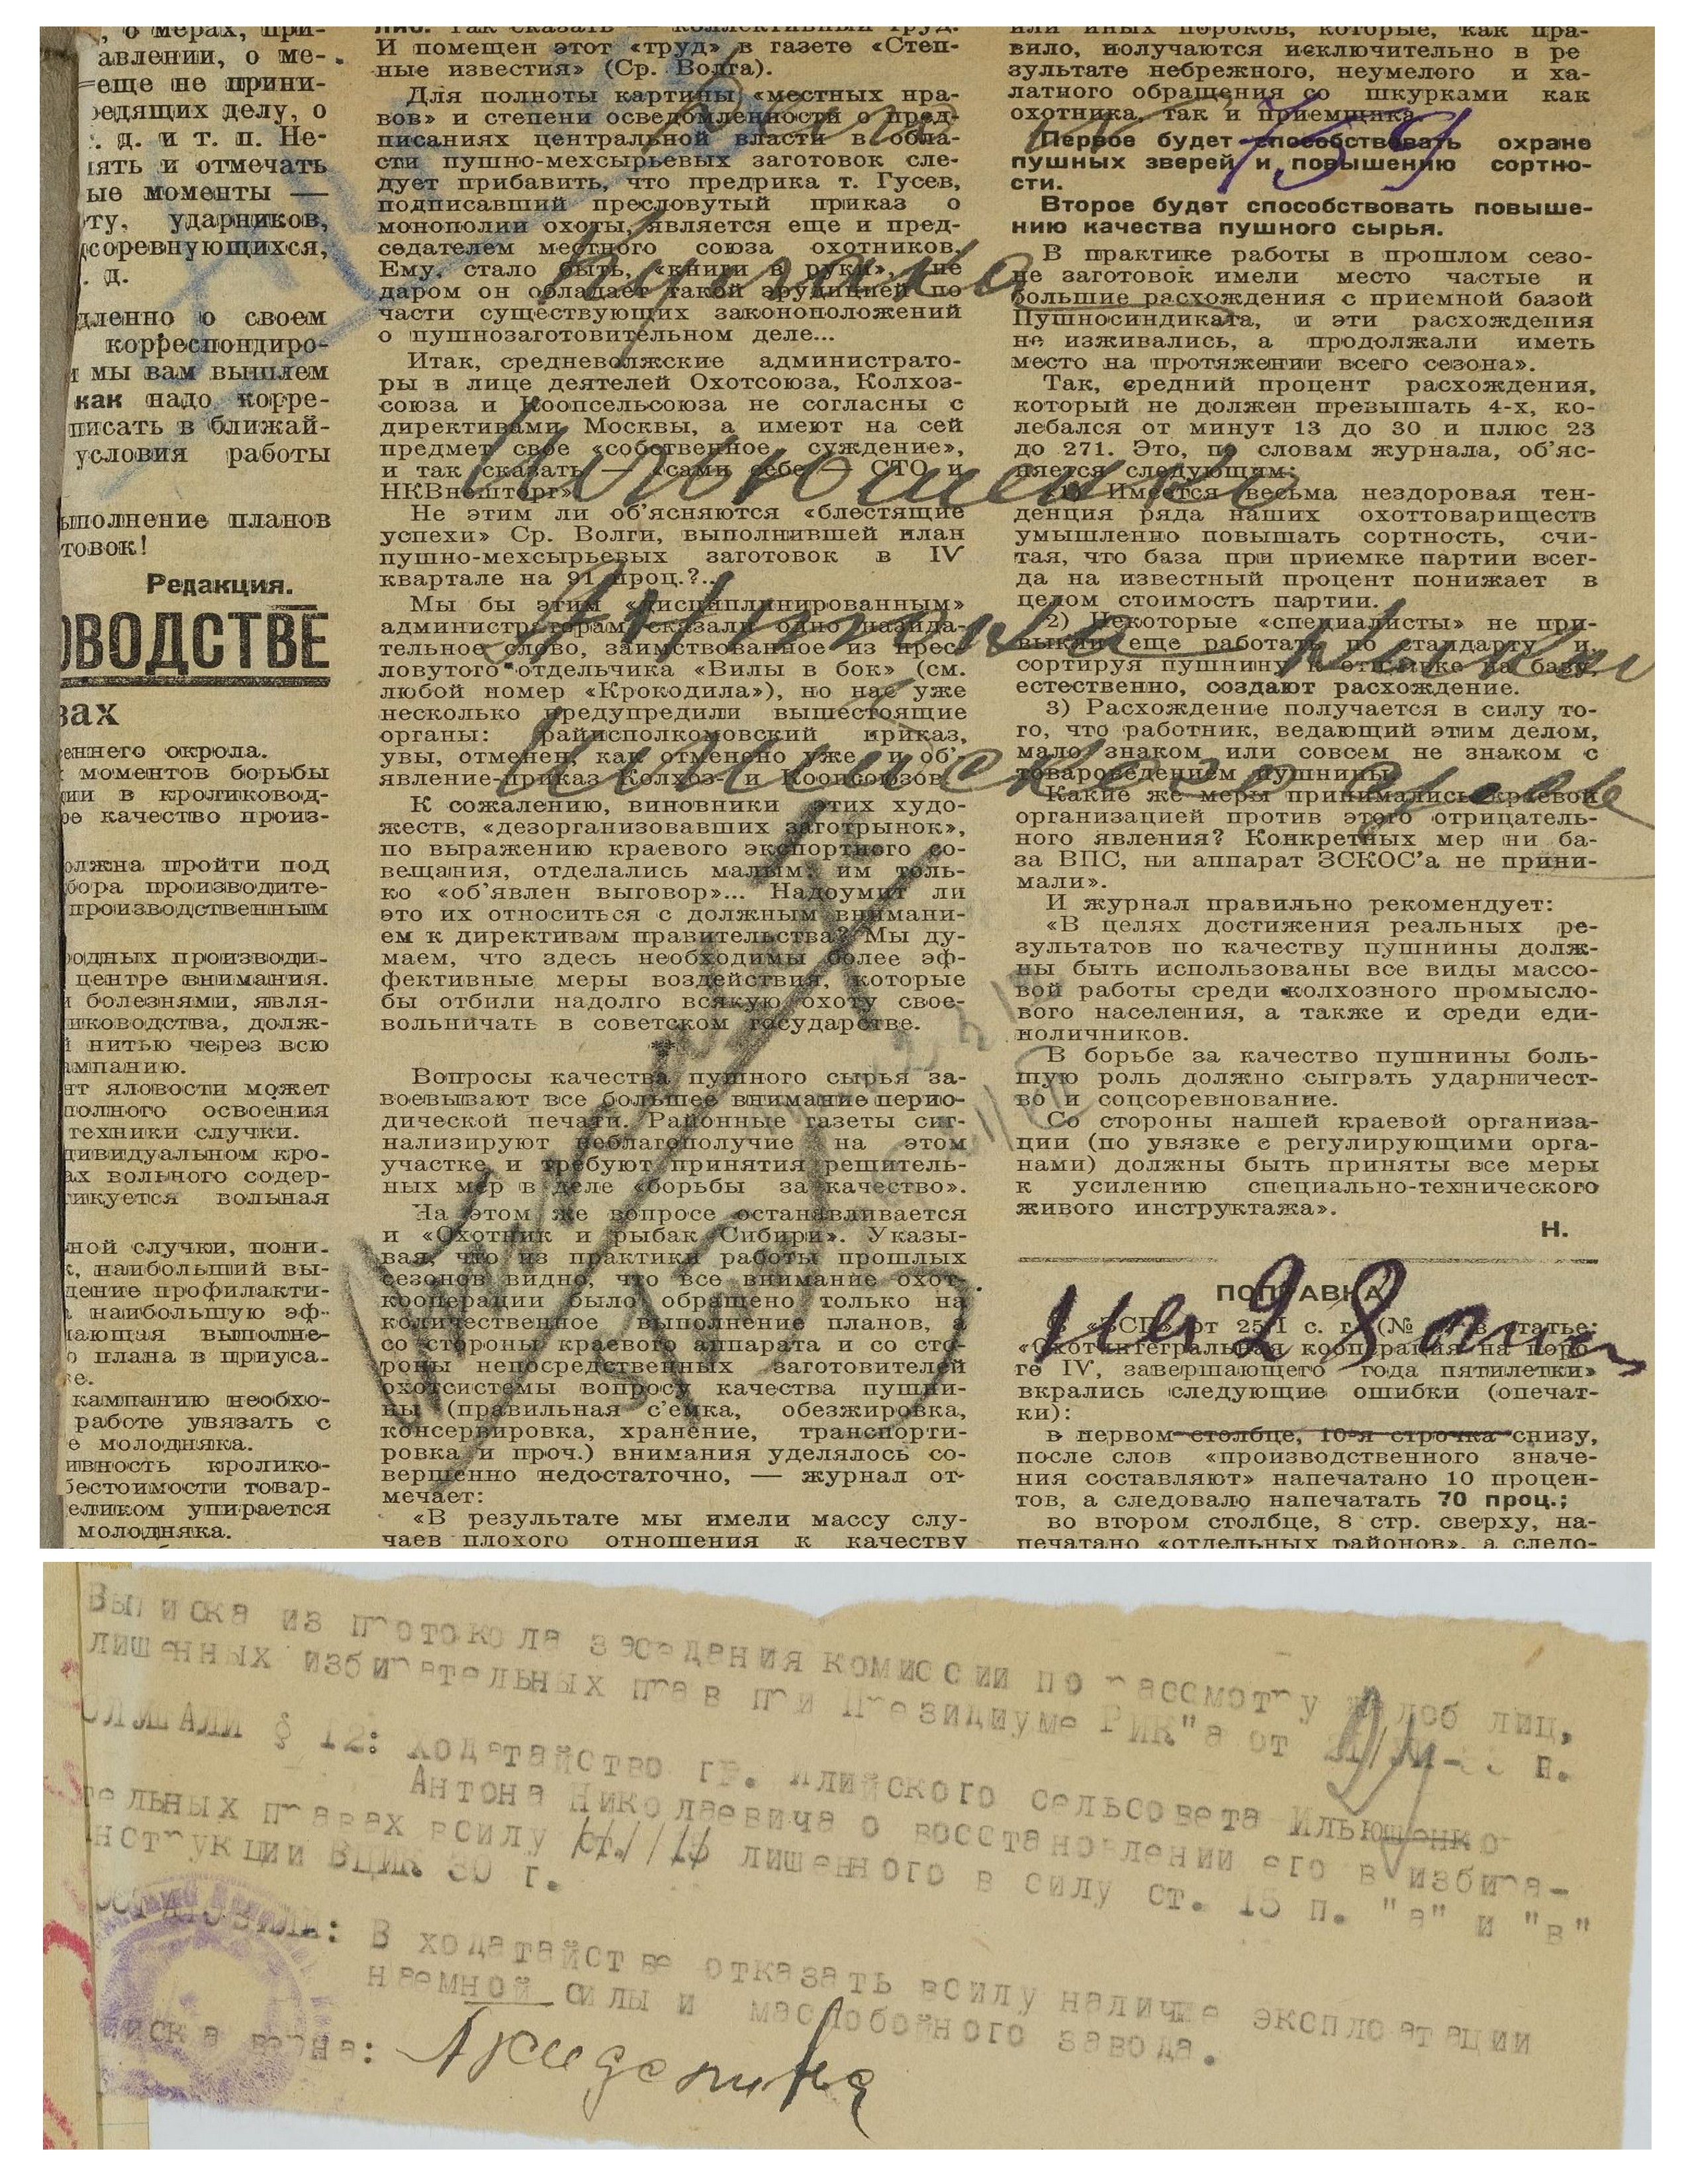 , о мерах, при-
авлении, о ме-
еще не прини-
редящих делу, о
д. и т. п. Не-
лять и отмечать
ые моменты —
ту, ударников,
соревнующихся,
д.
дленно о своем
корреспондиро-
и мы вам вышлем
как надо корре-
писать в ближай-
условия работы
ыполнение планов
товок!
Редакция.
ОВОДСТВЕ
вах
еннего окрола.
моментов борьбы
ции в кроликовод-
ое качество произ-
олжна пройти под
бора производите-
производственным
родных производи-
центре внимания.
и болезнями, явля-
иководства, долж-
й нитью через всю
ампанию.
нт яловости может
полного освоения
техники случки.
дивидуальном кро-
ах вольного содер-
тикуется вольная
ной случки, пони-
к, наибольший вы-
дение профилакти-
наибольшую эф-
лающая выполне-
о плана в приуса-
ве.
кампанию необхо-
работе увязать с
е молодняка.
ивность кролико-
бестоимости товар-
еликом упирается
молодняка.
лис. Так сказать — коллективный труд.
И помещен этот «труд» в газете «Степ-
ные известия» (Ср. Волга).
Для полноты картины «местных нра-
вов» и степени осведомленности о пред-
писаниях центральной власти в обла-
сти пушно-мехсырьевых заготовок сле-
дует прибавить, что предрика т. Гусев,
подписавший пресловутый приказ о
монополии охоты, является еще и пред-
седателем местного союза охотников.
Ему, стало быть, «книги в руки», не
даром он обладает такой эрудицией по
части существующих законоположений
о пушнозаготовительном деле...
Итак, средневолжские администрато-
ры в лице деятелей Охотсоюза, Колхоз-
союза и Коопсельсоюза не согласны с
директивами Москвы, а имеют на сей
предмет свое «собственное суждение»,
и так сказать — «сами себе — СТО и
НКВнешторг».
Не этим ли об'ясняются «блестящие
успехи» Ср. Волги, выполнившей план
пушно-мехсырьевых заготовок в IV
квартале на 91 проц.?...
Мы бы этим «дисциплинированным»
администраторам сказали одно назида-
тельное слово, заимствованное из прес-
ловутого отдельчика «Вилы в бок» (см.
любой номер «Крокодила»), но нас уже
несколько предупредили вышестоящие
органы: райисполкомовский приказ,
увы, отменен, как отменено уже и об'-
явление-приказ Колхоз- и Коопсоюзов.
К сожалению, виновники этих худо-
жеств, «дезорганизовавших заготрынок»,
по выражению краевого экспортного со-
вещания, отделались малым: им толь-
ко «об'явлен выговор»... Надоумит ли
это их относиться с должным внимани-
ем к директивам правительства? Мы ду-
маем, что здесь необходимы более эф-
фективные меры воздействия, которые
бы отбили надолго всякую охоту свое-
вольничать в советском государстве.
Вопросы качества пушного сырья за-
воевывают все большее внимание перио-
дической печати. Районные газеты сиг-
нализируют неблагополучие на этом
участке и требуют принятия решитель-
ных мер в деле «борьбы за качество».
На этом же вопросе останавливается
и «Охотник и рыбак Сибири». Указы-
вая, что из практики работы прошлых
сезонов видно, что все внимание охот-
кооперации было обращено только на
количественное выполнение планов, а
со стороны краевого аппарата и со сто-
роны непосредственных заготовителей
охотсистемы вопросу качества пушни-
ны (правильная с'емка, обезжировка,
консервировка, хранение, транспорти-
ровка и проч.) внимания уделялось со-
вершенно недостаточно, — журнал от-
мечает:
«В результате мы имели массу слу-
чаев плохого отношения к качеству
или иных пороков, которые, как пра-
вило, получаются исключительно в ре
зультате небрежного, неумелого и ха-
латного обращения со шкурками как
охотника, так и приемщика.
Первое будет способствовать охране
пушных зверей и повышению сортно-
сти.
Второе будет способствовать повыше-
нию качества пушного сырья.
В практике работы в прошлом сезо-
не заготовок имели место частые и
большие расхождения с приемной базой
Пушносиндиката, и эти расхождения
не изживались, а продолжали иметь
место на протяжении всего сезона».
Так, средний процент расхождения,
который не должен превышать 4-х, ко-
лебался от минут 13 до 30 и плюс 23
до 271. Это, по словам журнала, об'яс-
няется следующим:
1) Имеется весьма нездоровая тен-
денция ряда наших охоттовариществ
умышленно повышать сортность, счи-
тая, что база при приемке партии всег-
да на известный процент понижает в
целом стоимость партии.
2) Некоторые «специалисты» не при-
выкли еще работать по стандарту и,
сортируя пушнину к отправке на базу,
естественно, создают расхождение.
3) Расхождение получается в силу то-
го, что работник, ведающий этим делом,
мало знаком или совсем не знаком с
товароведением пушнины.
Какие же меры принимались краевой
организацией против этого отрицатель-
ного явления? Конкретных мер ни ба-
за ВПС, ни аппарат ЗСКОС'а не прини-
мали».
И журнал правильно рекомендует:
«В целях достижения реальных ре-
зультатов по качеству пушнины долж-
ны быть использованы все виды массо-
вой работы среди колхозного промысло-
вого населения, а также и среди еди-
ноличников.
В борьбе за качество пушнины боль-
шую роль должно сыграть ударничест-
во и соцсоревнование.
Со стороны нашей краевой организа-
ции (по увязке с регулирующими орга-
нами) должны быть приняты все меры
к усилению специально-технического
живого инструктажа».
Н.
ПОПРАВКА
В «ЗСП» от 25/I с. г. (№ в статье:
«Охотинтегральная кооперация на поро-
ге IV, завершающего года пятилетки»
вкрались следующие ошибки (опечат-
ки):
в первом столбце, 10-я строчка снизу,
после слов «производственного значе-
ния составляют» напечатано 10 процен-
тов, а следовало напечатать 70 проц.;
во втором столбце, 8 стр. сверху, на-
печатано «отдельных районов», а следо-
Дело № 759
кулака
Ильюшенко
Антона Никол
Илийского
на 28
Выписка из протокола заседания комиссии по рассмотру жалоб лиц,
лишенных избирательных прав при Президиуме РИК"а от г.
СЛУШАЛИ § 12: Ходатайство гр. Илийского сельсовета Ильюшенко
Антона Николаевича о восстановлении его в избира-
тельных правах всилу лишенного в силу ст. 15 п. "а" и "в"
нструкции ВЦИК 30 г.
ПОСТАНОВИЛИ: В ходатайстве отказать всилу наличие эксплоатации
наемной силы и маслобойного завода.
иска верна: